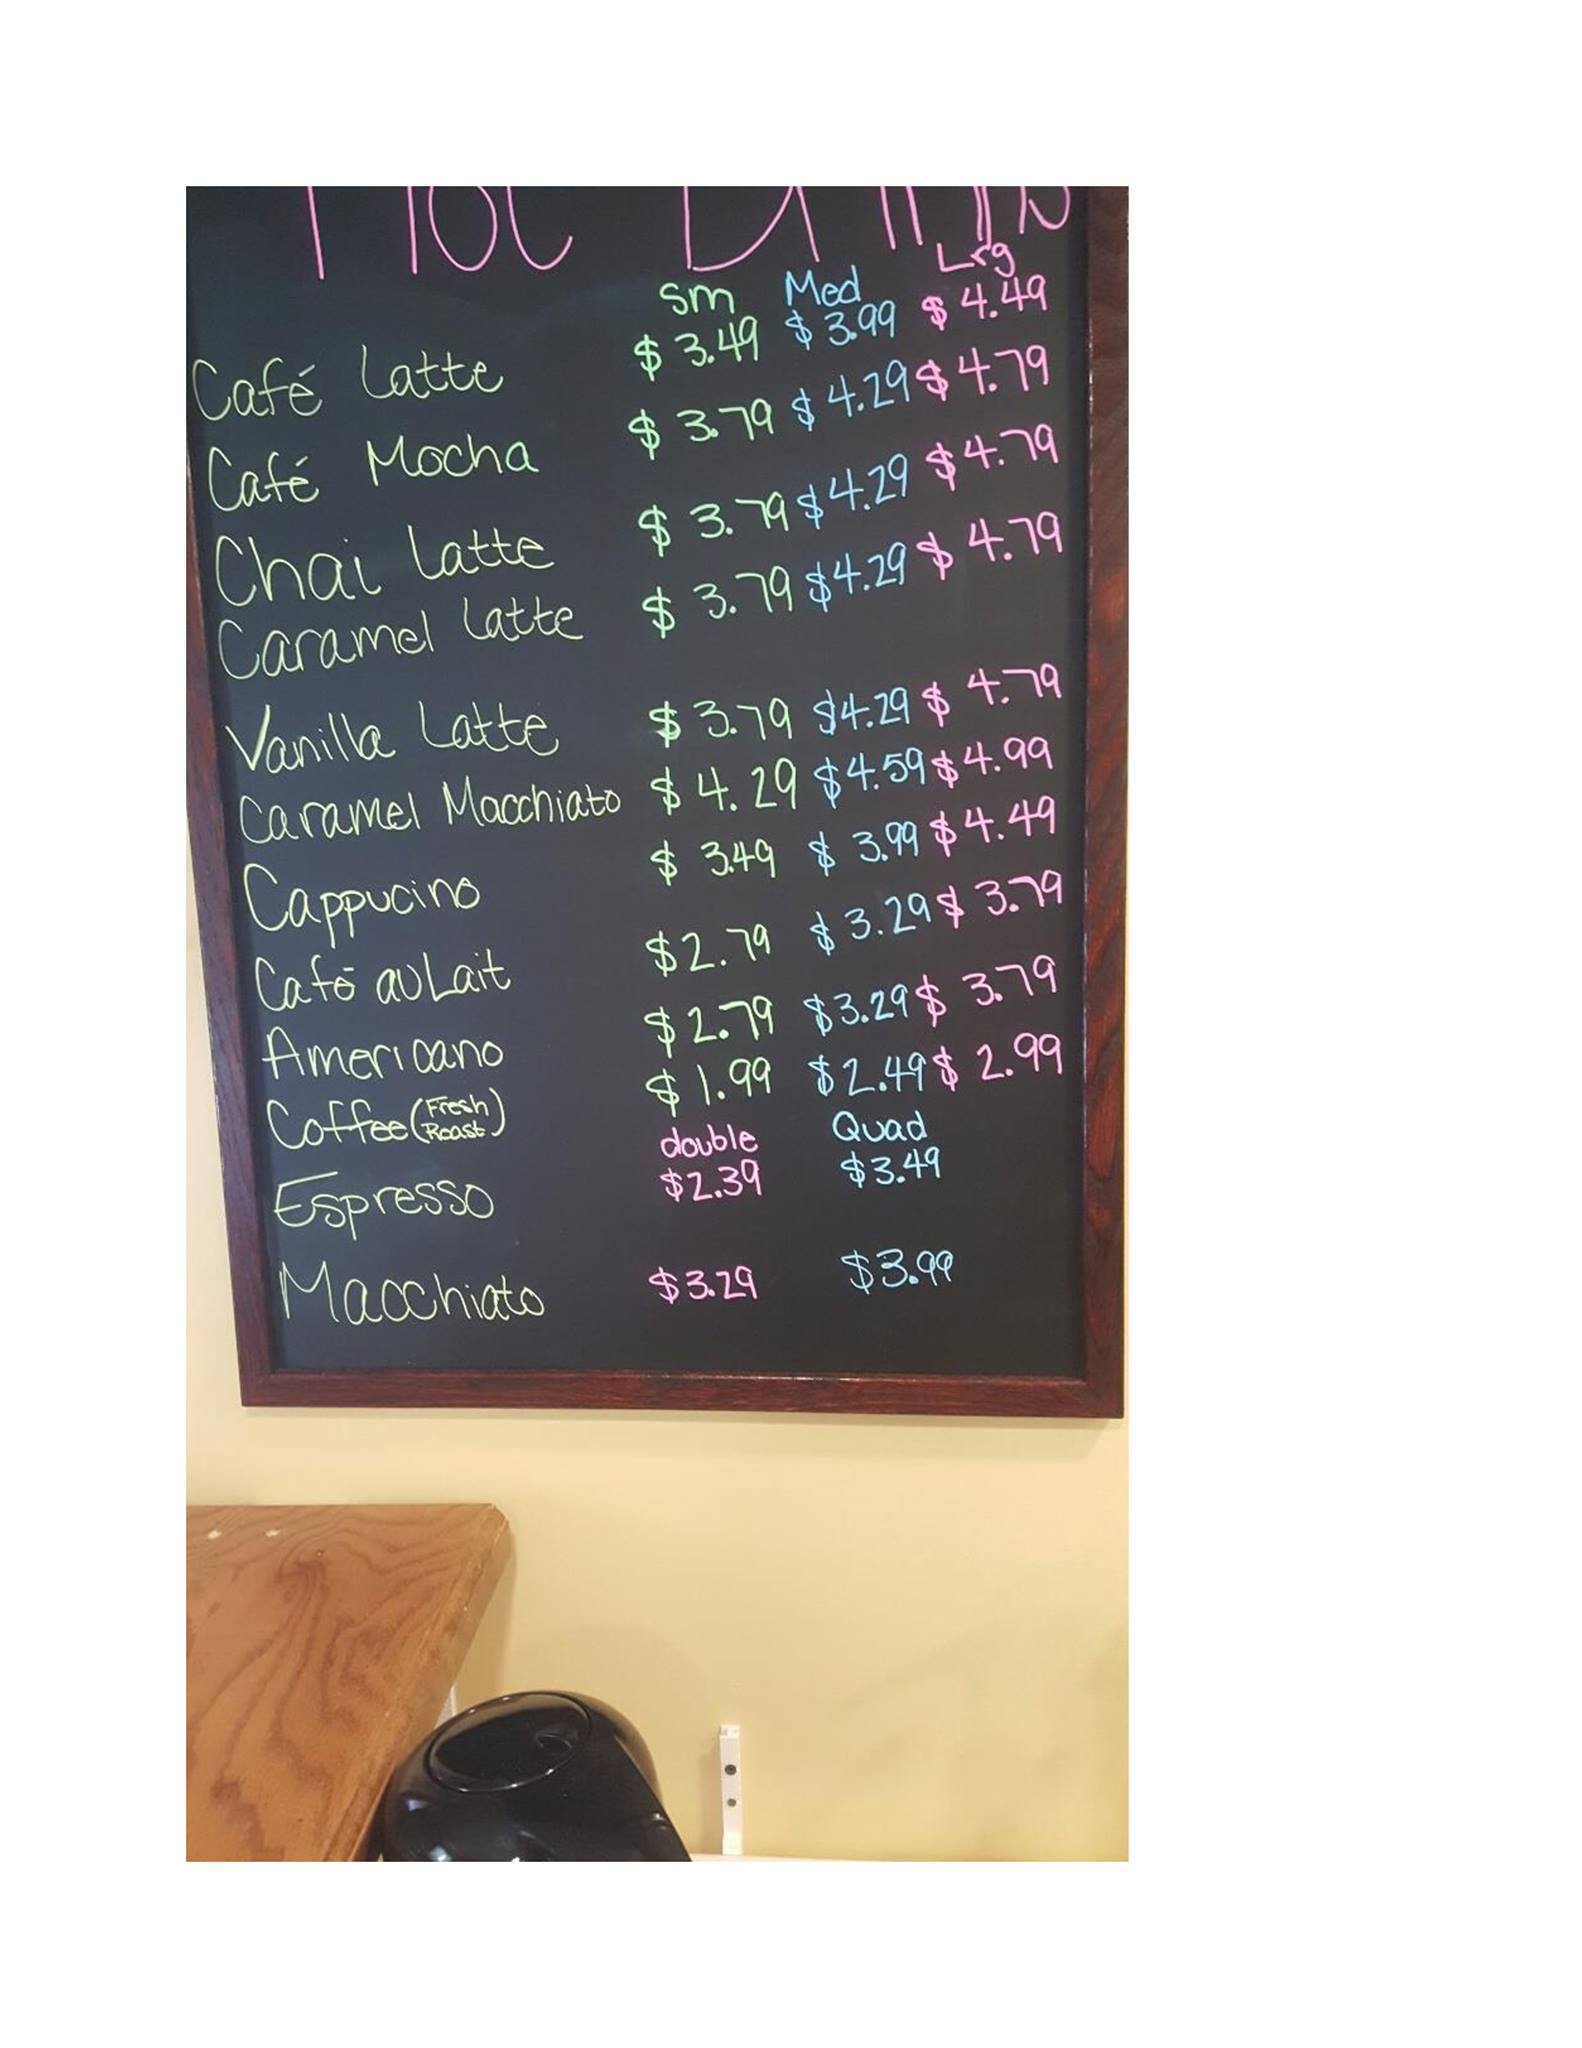 Hot Drin
Sm Med Lrg
Café Latte $3.49 $3.99 $4.49
Café Mocha $3.79 $4.29 $4.79
Chai Latte $3.79 $4.29 $4.79
Caramel Latte $3.79 $4.29 $4.79
Vanilla Latte $3.79 $4.29 $4.79
Caramel Macchiato $4.29 $4.59 $4.99
Cappucino $3.49 $3.99 $4.49
Café au Lait $2.79 $3.29 $3.79
Americano $2.79 $3.29 $3.79
Coffee (Fresh Roast) $1.99 $2.49 $2.99
double Quad
Espresso $2.39 $3.49
Macchiato $3.29 $3.99